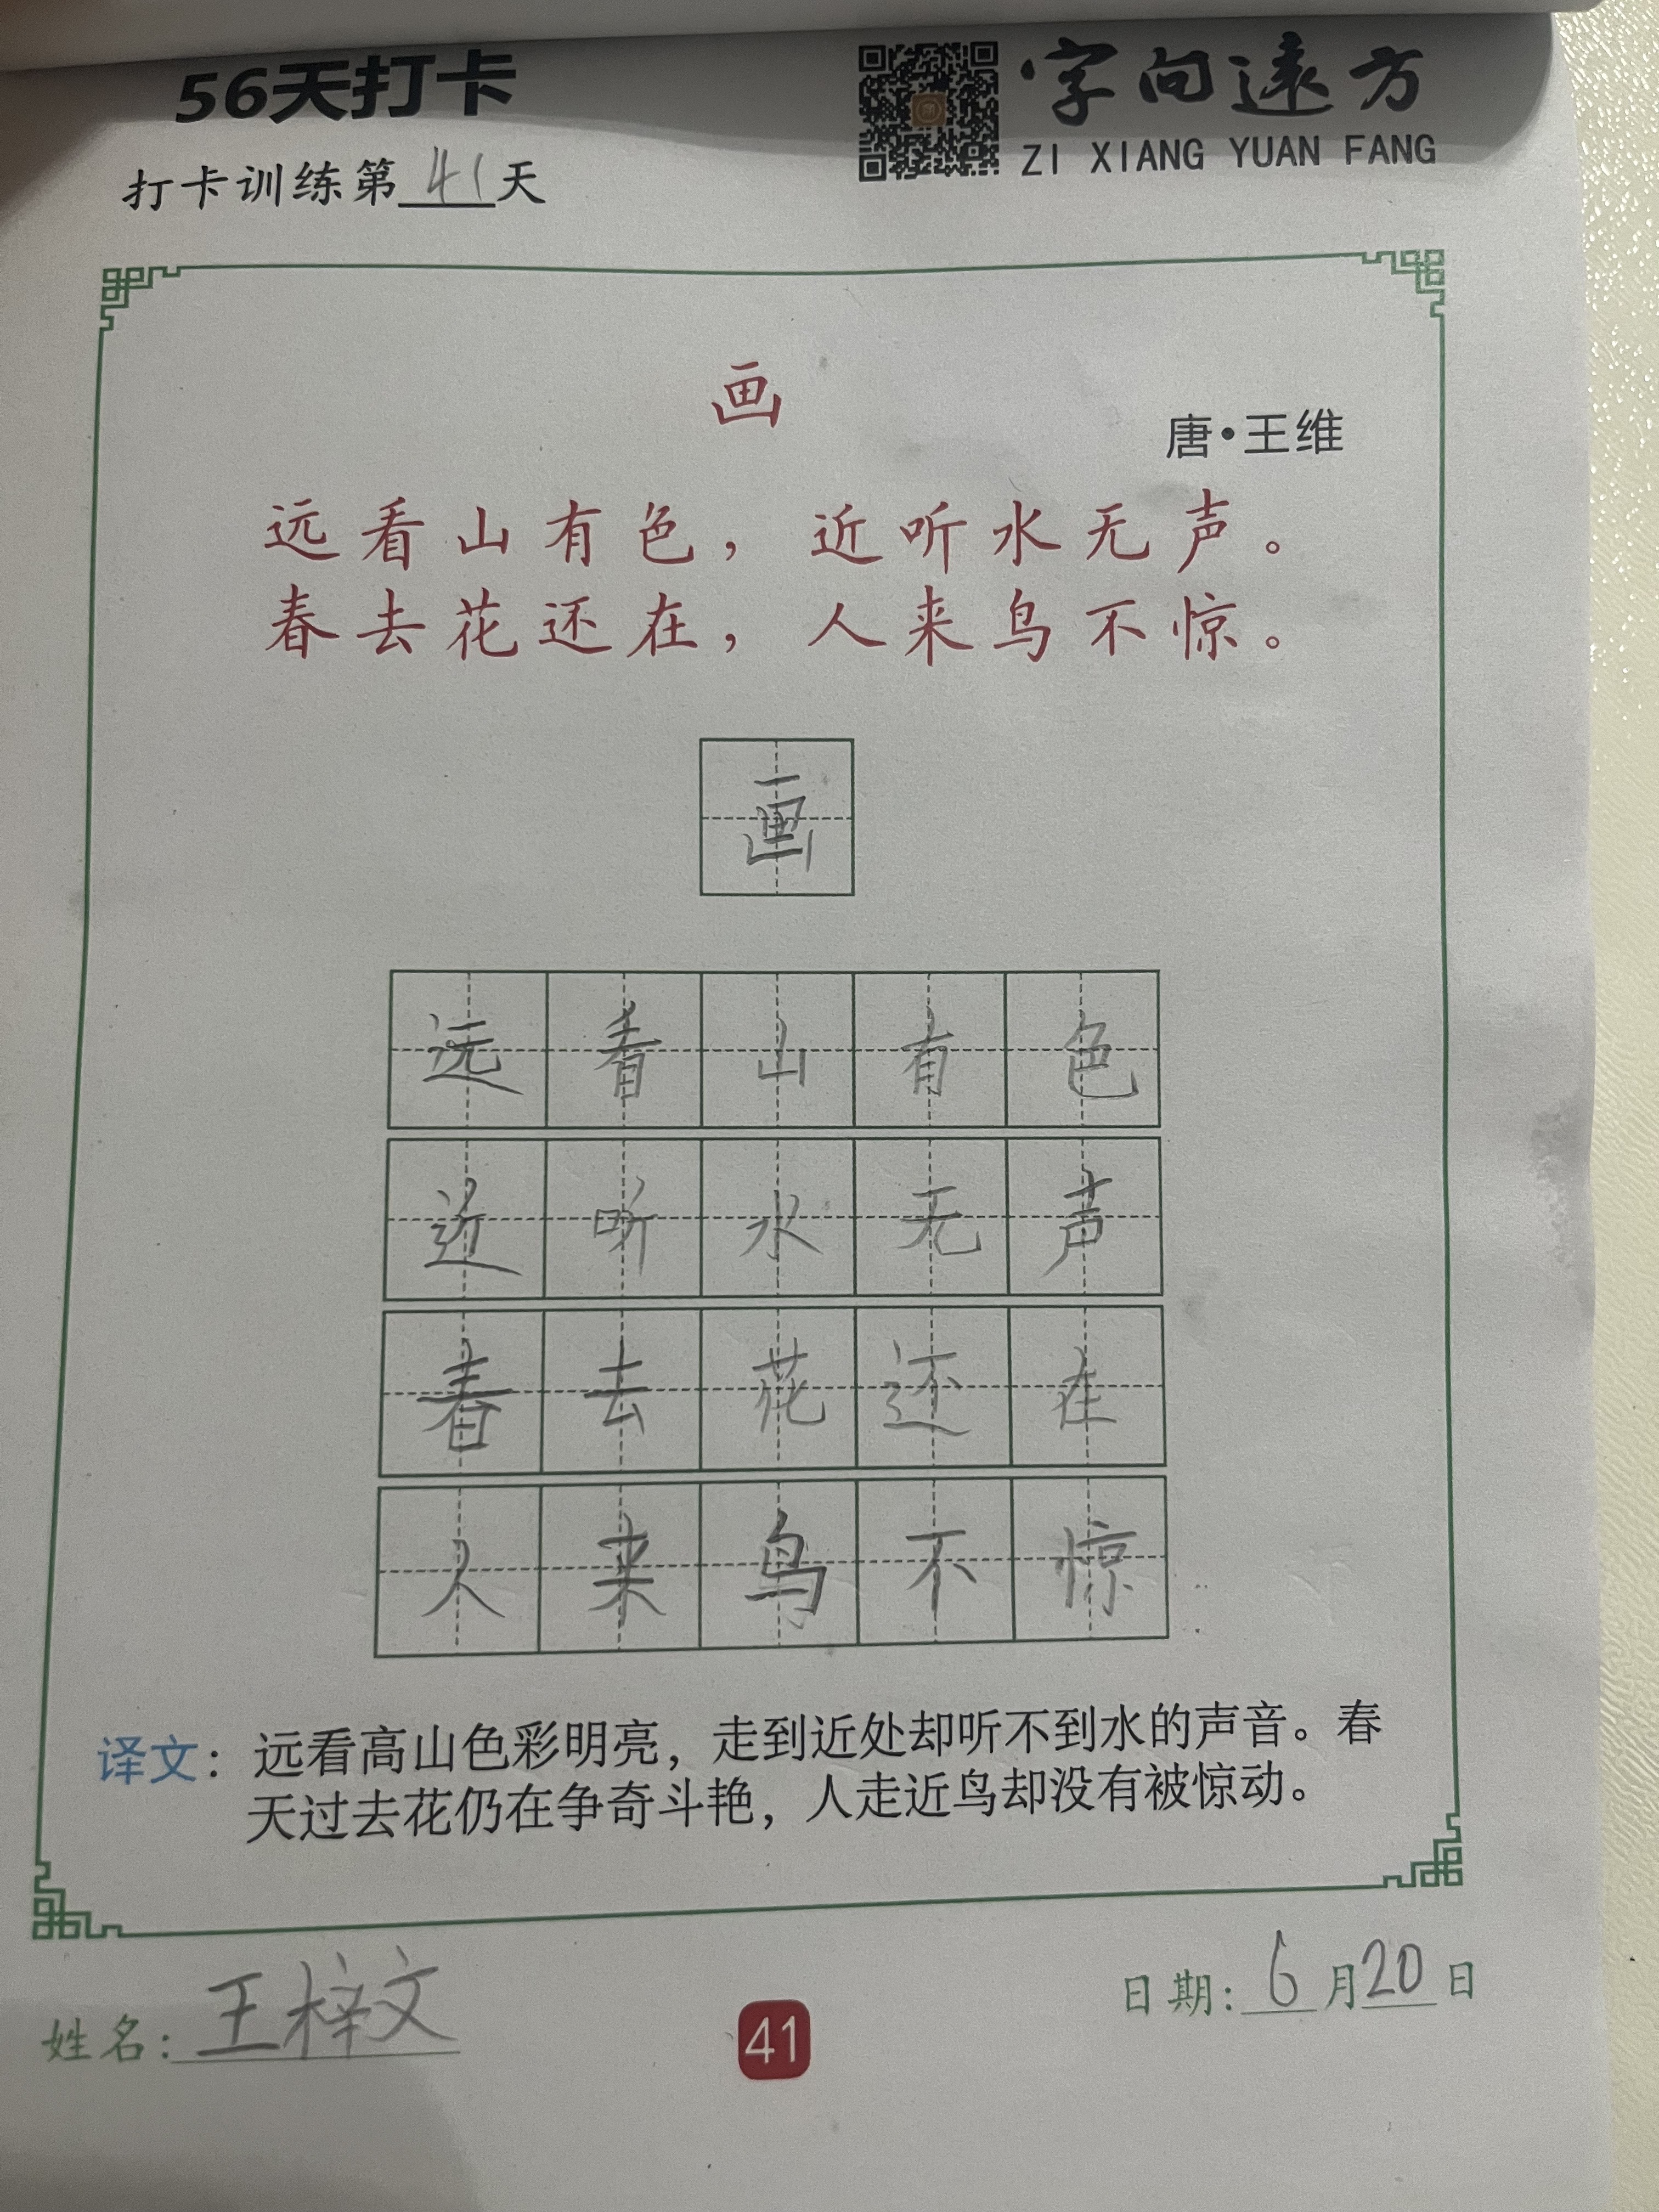 56天打卡
字向远方
ZI XIANG YUAN FANG
打卡训练第41天
画
唐·王维
远看山有色，近听水无声。
春去花还在，人来鸟不惊。
画
远看山有色
近听水无声
春去花还在
人来鸟不惊
译文：远看高山色彩明亮，走到近处却听不到水的声音。春
天过去花仍在争奇斗艳，人走近鸟却没有被惊动。
姓名：王梓文
41
日期：6月20日